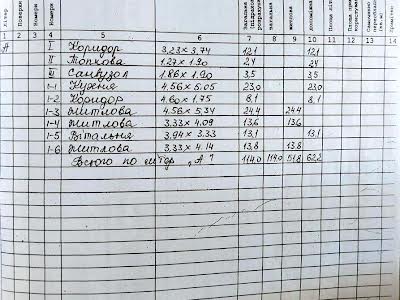 Літер Поверхи Номери Номери
загальна житлова
1 2 3 4 5 6 7 8 9 10 11 12 13 14
А I Коридор 3.23 x 3.74 12,1 12,1
II Топкова 1.27 x 1.90 2,4 2,4
III Санвузол 1.86 x 1.90 3,5 3,5
1-1 Кухня 4.56 x 5.05 23,0 23,0
1-2 Коридор 4.60 x 1.75 8,1 8,1
1-3 Житлова 4.56 x 5,34 24,4 24,4
1-4 Житлова 3.33 x 4.09 13,6 13,6
1-5 Вітальня 3,94 x 3.33 13,1 13,1
1-6 Житлова 3.33 x 4.14 13,8 13,8
Всього по літер „А" 114,0 114,0 51,8 62,2